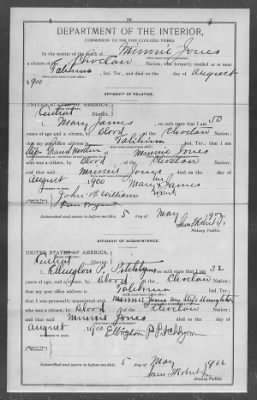 DEPARTMENT OF THE INTERIOR,
COMMISSION TO THE FIVE CIVILIZED TRIBES.
In the matter of the death of Minnie Jones
a citizen of the Choctaw Nation, who formerly resided at or near
Talihina, Ind. Ter., and died on the day of August
1900
AFFIDAVIT OF RELATIVE.
UNITED STATES OF AMERICA,
Central District.
I, Mary James, on oath state that I am 50
years of age and a citizen, by blood, of the Choctaw Nation;
that my post office address is Talihina, Ind. Ter.; that I am
Grand mother of Minnie Jones
who was a citizen, by blood, of the Choctaw Nation;
and that said Minnie Jones died on the day of
August, 1900
Mary James
John Williams
Subscribed and sworn to before me this 5 day of May
Notary Public.
AFFIDAVIT OF ACQUAINTANCE.
UNITED STATES OF AMERICA,
Central District.
I, Ellington P. Pitchlynn, on oath state that I am 32
years of age, and a citizen by blood of the Choctaw Nation;
that my post office address is Talihina, Ind. Ter.;
that I was personally acquainted with Minnie Jones
who was a citizen, by blood, of the Choctaw Nation;
and that said Minnie Jones died on the day of
August, 1900
Ellington P. Pitchlynn
Subscribed and sworn to before me this 5 day of May 1902
Notary Public.